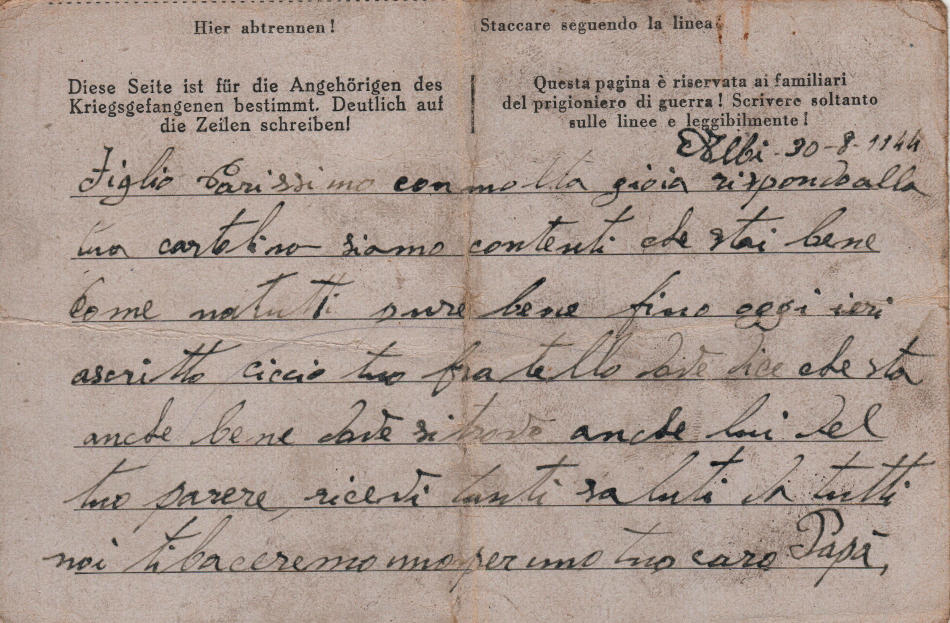 Hier abtrennen!
Staccare seguendo la linea.
Diese Seite ist für die Angehörigen des
Kriegsgefangenen bestimmt. Deutlich auf
die Zeilen schreiben!
Questa pagina è riservata ai familiari
del prigioniero di guerra! Scrivere soltanto
sulle linee e leggibilmente!
Albi - 30-8-1944
Figlio Carissimo con molta gioia rispondo alla
tua cartolino siamo contenti che stai bene
Come noi tutti pure bene fino oggi ieri
ascritto ciccio tuo fratello dove dice che sta
anche bene dove si trova anche lui del
tuo parere, ricevi tanti saluti da tutti
noi ti baceremo uno per uno tuo caro Papà,